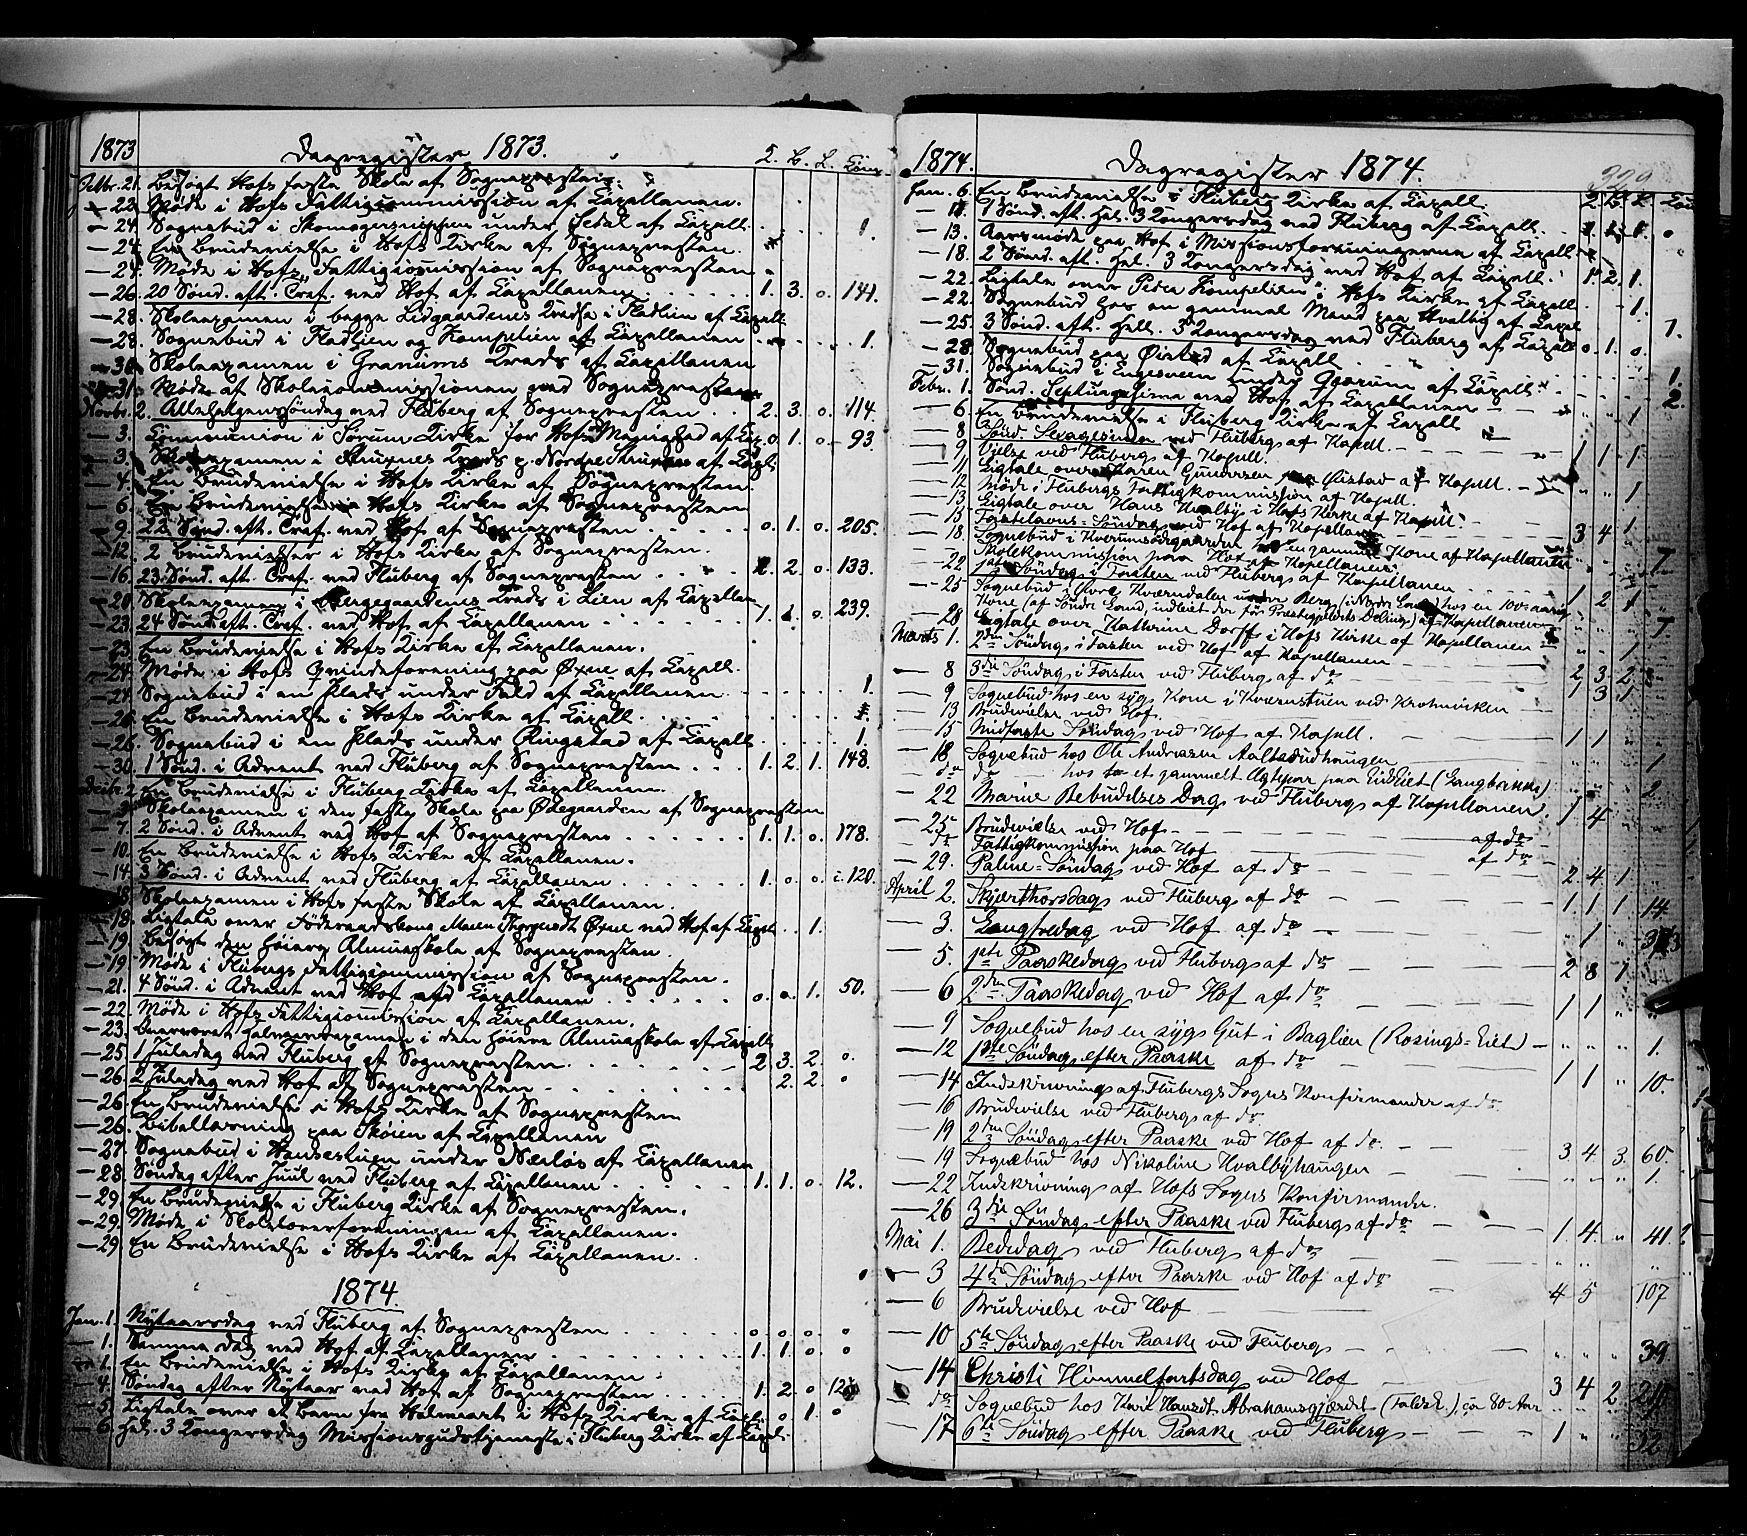 1873
Dagregister 1873.
21. Besøgt Hofs faste Skole af Sognepresten.
— 22. Møde i Hofs Fattigcommission af Capellanen.
— 24. Sognebud i under af Capell. 1.
— 24. En Brudevielse i Hofs Kirke af Sognepresten.
— 24. Møde i Hofs Fattigcommission af Sognepresten
— 26. 20 Sønd. aft. Tref. ved Hof af Capellanen 1. 3. o. 141.
— 28. Skoleexamen i begge Lidgaardenes Kreds i Fladlien af Capell
— 28. Sognebud i Fladlien og Kompelien af Capellanen 1.
— 30. Skoleexamen i Granums Kreds af Capellanen
— 31. Møde af Skolecommissionen ved Sognepresten
Novbr. 2. Allehelgenssøndag ved Fluberg af Sognepresten 2. 3. o. 114.
— 3. Communion i Sørum Kirke for Hofs Menighed af Cap. o. 1. o. 93
— 3. Skoleexamen i Kreds p. Nordre af Capl.
— 4. En Brudevielse i Hofs Kirke af Sognepresten.
— 6. En Brudevielse Hofs Kirke af Sognepresten
— 9. 22 Sønd. aft. Tref. ved Hof af Sognepresten o. 1. o. 205.
— 12. 2 Brudevielser i Hofs Kirke af Sognepresten.
— 16. 23 Sønd. aft. Tref. ved Fluberg af Sognepresten 2. o. 133.
— 20. Skoleexamen i Kreds i Lien af Capellan
— 23. 24 Sønd. aft. Tref. ved Hof af Capellanen 1. 1. o. 239.
— 23. En Brudevielse i Hofs Kirke af Capellanen.
— 24. Møde i Hofs Qvindeforening paa Øxne af Capell.
— 24. Sognebud i en Plads under Fald af Capellanen 1.
— 26. En Brudevielse i Hofs Kirke af Capell.
— 26. Sognebud i en Plads under Ringstad af Capell 1.
— 30. 1 Sønd. i Advent ved Fluberg af Sognepresten 1. 2. 1. 148.
Decbr. 2. En Brudevielse i Fluberg Kirke af Capellanen.
— 3. Skoleexamen i den faste Skole paa Ødegaarden af Sognepresten
— 7. 2 Sønd. i Advent ved Hof af Sognepresten 1. 1. o. 178.
— 10. En Brudevielse i Hofs Kirke af Capellanen.
— 14. 3 Sønd. i Advent ved Fluberg af Capellanen 1. o. o. 120.
— 18. Skoleexamen i Hofs faste Skole af Capellanen.
— 18. Ligtale over Føderaadskone Maren Øxne ved Hof af Capel 1.
— 19. Besøgt den høiere Almueskole af Sognepresten
— 19. Møde i Flubergs Fattigcommission af Sognepresten.
— 21. 4 Sønd. i Advent ved Hof ved Capellanen o. o. 1. 50.
— 22. Møde i Hofs Fattigcommission af Capellanen.
— 23. Overværet Halvaarsexamen i den høiere Almueskole af Capell
— 25. 1 Juledag ved Fluberg af Sognepresten 2. 3. 2. o.
— 26. 2 Juledag ved Hof af Sognepresten 2. 2. o
— 26. En Brudevielse i Hofs Kirke af Sognepresten
— 26. Bibellæsning paa Skøien af Capellanen
— 27. Sognebud i under af Capellanen
— 28. Søndag efter Juul ved Fluberg af Capellanen 1. 1. o. 12.
— 29. En Brudevielse i Fluberg Kirke af Sognepresten.
— 29. Møde i Skolelærerforeningen af Capellanen.
— 29. En Brudevielse i Hofs Kirke af Capellanen.
1874.
Jan. 1. Nytaarsdag ved Fluberg af Sognepresten o. o. o. o
— 1. Samme Dag ved Hof af Capellanen 1. 1. o. o
— 1. En Brudevielse i Hofs Kirke af Capellanen.
— 4. Søndag efter Nytaar ved Hof af Sognepresten 1. 2. o
— 5. Ligtale over et Barn fra i Hofs Kirke af Capl. o 1. o
— 6. Hel. 3 Kongersdag Missionsgudstjeneste i Fluberg Kirke af Capel.
1874.
Dagregister 1874.
Jan. 6. En Brudevielse i Fluberg Kirke af Capell.
— 11. 1 Sønd. aft. Hel. 3 Kongersdag ved Fluberg af Capell.
— 13. Aarsmøde paa Hof i Missionsforeningerne af Capell
— 18. 2 Sønd. aft. Hel. 3 Kongersdag ved Hof af Capell. 1. 2. 1.
— 22. Ligtale over Petra Kompelien i Hofs Kirke af Capell. 1.
— 22. Sognebud hos en gammel Mand paa Hvalby af Capel 1.
— 25. 3 Sønd. aft. Hell. 3 Kongersdag ved Fluberg af Capell o. 1. o.
— 28. Sognebud paa Øistad af Capell
— 31. Sognebud i under af Capell 1.
Febr. 1. Sønd. Septuagesima ved Hof af Capellanen 2.
— 6. En Brudevielse i Fluberg Kirke af Capell
— 8 Sønd. Sexagesima ved Flubergs af Kapell. 1 1 1
9 Vielse ved Fluberg af Kapell.
11 Ligtale over Karen Gunersen Øistad af Kapell.
12 Møde i Flubergs Fattigkommission af Kapell.
13 Ligtale over Hans Hvalby i Hofs Kirke af Kapell.
15 Fastelavns-Søndag ved Hof af Kapellanen 3 4 1
18. Sognebud i Kværumsødegaarden hos en gammel Kone af Kapellanen
Skolekommission paa Hof af Kapellanen
22 1ste Søndag i Fasten ved Flubergs af Kapellanen 1 2 1
25 Sognebud i Øvre Kværndalen under Berg (i Nordre Land) hos en 100aarig
Kone (af Søndre Land, indleiet der før Præstegjeldets Deling) af Kapellanen
28 Ligtale over Kathrine Dorff i Hofs Kirke af Kapellanen 1
Marts 1. 2den Søndag i Fasten ved Hof af Kapellanen
— 8 3die Søndag i Fasten ved Fluberg af do 2 3 2
— 9 Sognebud hos en syg Kone i Kværnstuen ved 1 3 1
— 13 Brudevielse ved Hof.
— 15 Midfaste Søndag ved Hof af Kapell. 1 1
— 18 Sognebud hos Ole Andersen 1
— do do hos et gammelt Ægtepar paa Lidleiet 2
— 22 Mariæ Bebudelses Dag ved Flubergs af Kapellanen. 1 4
— 25 Brudevielse ved Hof af do
— do Fattigkommission paa Hof af do
— 29. Palme-Søndag ved Hof af do 2 4 1
April 2. Skjærthorsdag ved Flubergs af do 1. 1 1 14
— 3. Langfredag ved Hof af do 1
— 5. 1ste Paaskedag ved Flubergs af do 2 8 1
— 6 2den Paaskedag ved Hof af do 1 1
— 9 Sognebud hos en syg Gut i Baglien (Rosings-Eiet) 1.
— 12 1ste Søndag efter Paaske af do 1 1 " 10.
— 14 Indskrivning af Flubergs Sogns Konfirmander af do
— 16 Brudevielse ved Flubergs af do
— 19 2den Søndag efter Paaske ved Hof af do 3 4 3. 60.
— 19 Sognebud hos Nikoline Hvalbyhaugen 1.
— 22 Indskrivning af Hofs Sogns Konfirmander.
— 26 3die Søndag efter Paaske ved Flubergs af do 1. 4. " 41.
Mai 1. Bededag ved Flubergs af do
— 3 4de Søndag efter Paaske ved Hof af do 4 5 107
— 6 Brudevielse ved Hof
— 10 5te Søndag efter Paaske ved Flubergs 39
— 14 Christi Himmelfartsdag ved Hof 3 4 2
— do Sognebud hos Kari Abrahamsgjærdet ca 80 Aar
— 17 6te Søndag efter Paaske ved Flubergs 1 " " 52